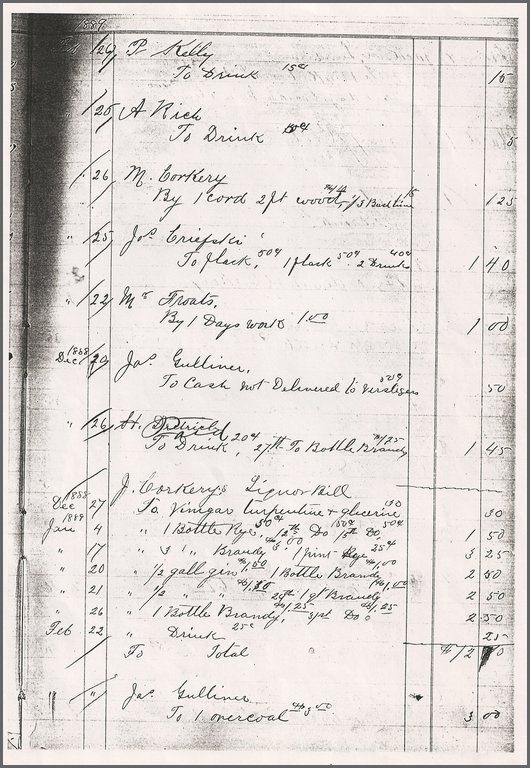 1889
Feb /26 P. Kelly
To Drink 15¢ 15
" /25 A Rich
To Drink 5
" /26 M. Corkery
By 1 Cord 2 ft wood, 1 25
" /25 Jos Criefski
To flask, 50¢ 1 flask 50¢ 2 Drinks 40¢ 1 40
" /22 Mrs Froats,
By 1 Days work 1.00 1 00
1888
Dec /29 Jas Gulliner,
To Cash not Delivered to 50¢ 50
" /26 H.
To Drink, 20¢ 27th To Bottle Brandy 1/25 1 45
J. Corkery's Liquor Bill
1888
Dec 27 To Vinegar turpentine & glycerine 30 30
1889
Jan 4 " 1 Bottle Rye, 50¢ 12th Do 50¢ 15th Do 50¢ 1 50
" 17 " 3 " Brandy 3.00 1 pint Rye 25¢ 3 25
" 20 " 1/2 gall gin $1.50 1 Bottle Brandy $1.00 2 50
" 21 " 1/2 " " 1 qt Brandy $1.00 2 50
" 26 " 1 Bottle Brandy, $1.25 31st Do $1.25 2 50
Feb 22 " Drink 25¢ 25
To Total
" " Jas Gulliner
To 1 overcoat $3.00 3 00